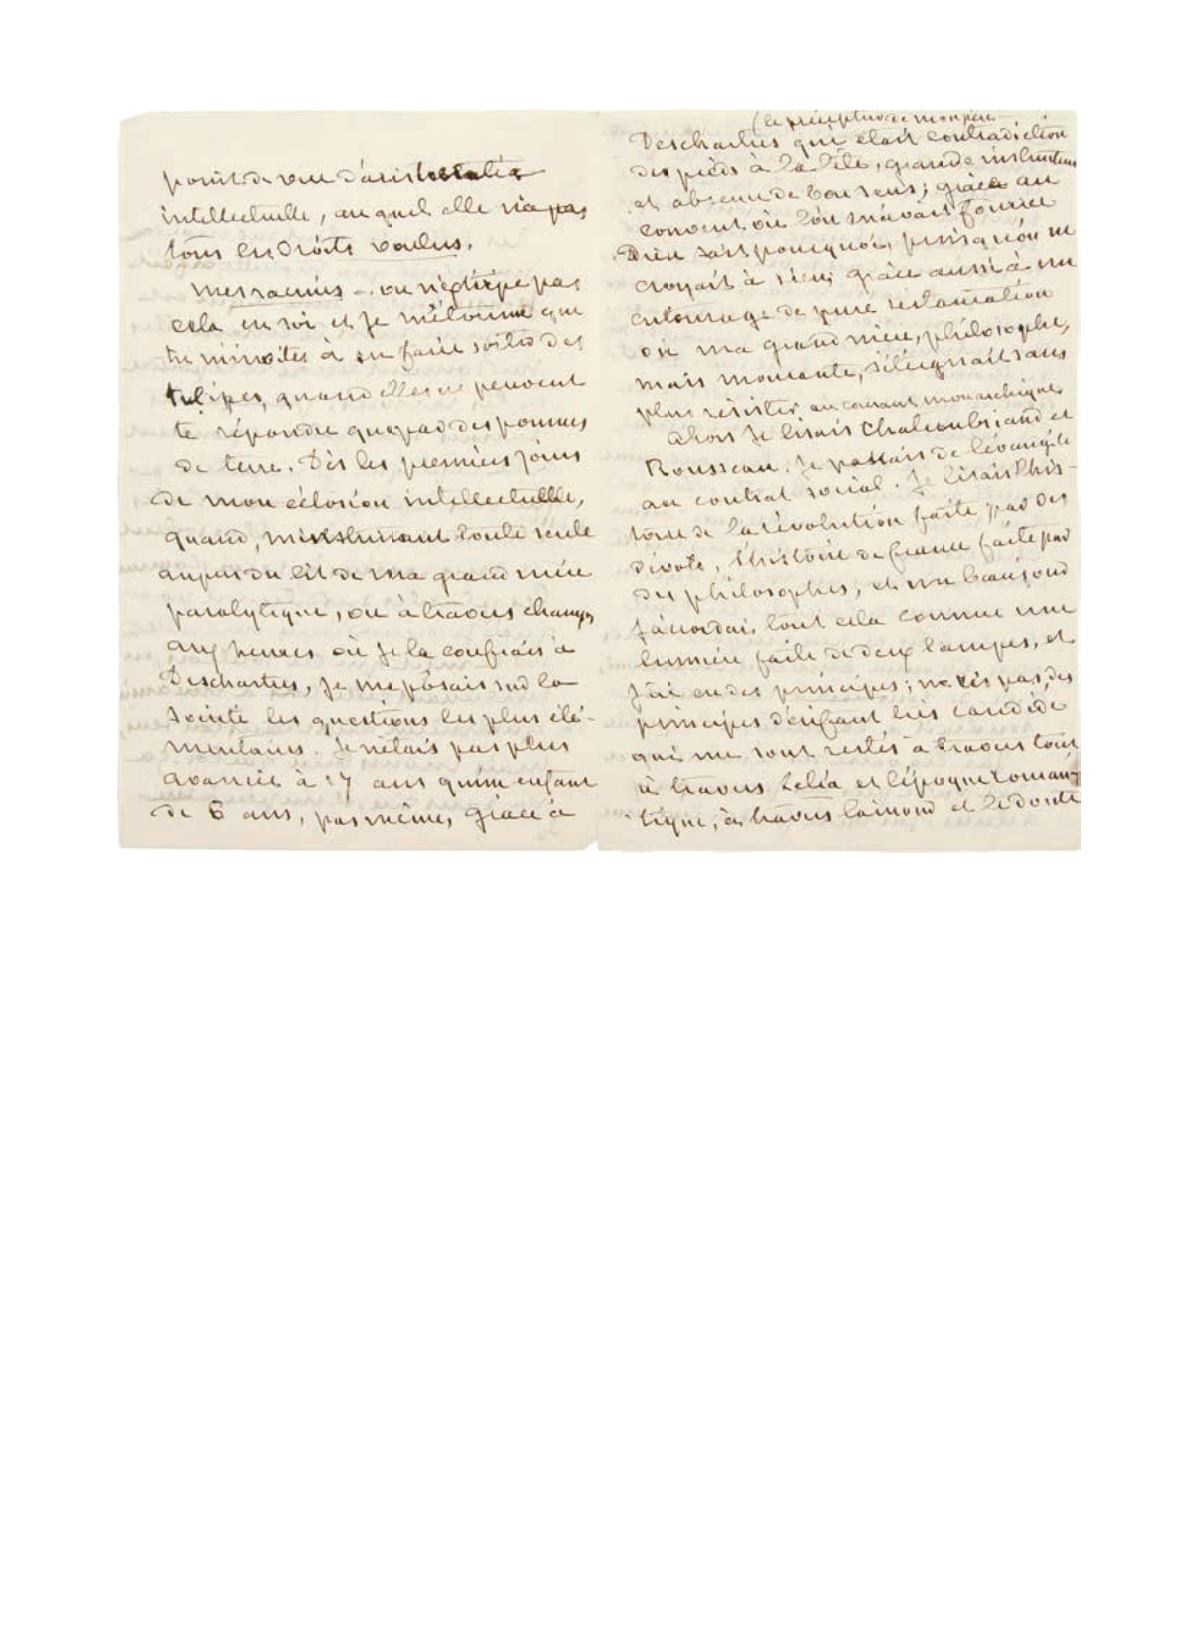 point de vue d'aristocratie
intellectuelle, auquel elle n'a pas
tous les droits voulus.
Mes racines – on n'extirpe pas
cela en soi et je m'étonne que
tu m'invites à en faire sortir des
tulipes, quand elles ne peuvent
te répondre que par des pommes
de terre. Dès les premiers jours
de mon éclosion intellectuelle,
quand, m'instruisant toute seule
auprès du lit de ma grand mère
paralytique, ou à travers champs
aux heures où je la confiais à
Deschartres, je me posais sur la
société les questions les plus élé-
mentaires. Je n'étais pas plus
avancée à 17 ans qu'un enfant
de 6 ans, pas même, grâce à
(le précepteur de mon père
Deschartres qui était contradiction
des pieds à la tête, grande instruction
et absence de bon sens; grâce au
convent où l'on m'avait fourrée
Dieu sait pourquoi, puisqu'on ne
croyait à rien; grâce aussi à un
entourage de pure restauration
où ma grand mère, philosophe,
mais mourante, s'éteignait sans
plus résister au courant monarchique
Alors je lisais Chateaubriand et
Rousseau. Je passais de l'évangile
au contrat social. Je lisais l'his-
toire de la révolution faite par des
dévots, l'histoire de france faite par
des philosophes, et un beau jour
j'accordai tout cela comme une
lumière faite de deux lampes, et
j'ai eu des principes; ne ris pas, des
principes d'enfant très candide
qui me sont restés à travers tout
à travers Lélia et l'époque roman-
tique, à travers l'amour et le doute